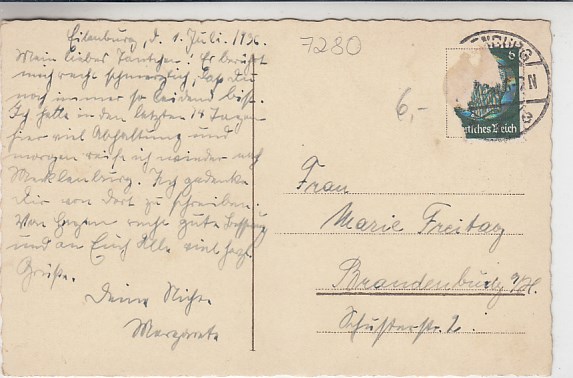 Eilenburg, d. 1. Juli. 1936.
Mein liebes Tantchen! Es berührt
mich recht schmerzlich, daß Du
noch immer so leidend bist.
Ich hatte in den letzten 14 Tagen
hier viel Abhaltung und
morgen reise ich wieder nach
Mecklenburg. Ich gedenke
Dir von dort zu schreiben.
recht gute
und an Euch Alle viel herzl.
Grüße.
Deine Nichte
Margarete
7280
6,-
Deutsches Reich
Frau
Marie Freitag
Brandenburg a/H.
Schusterstr.